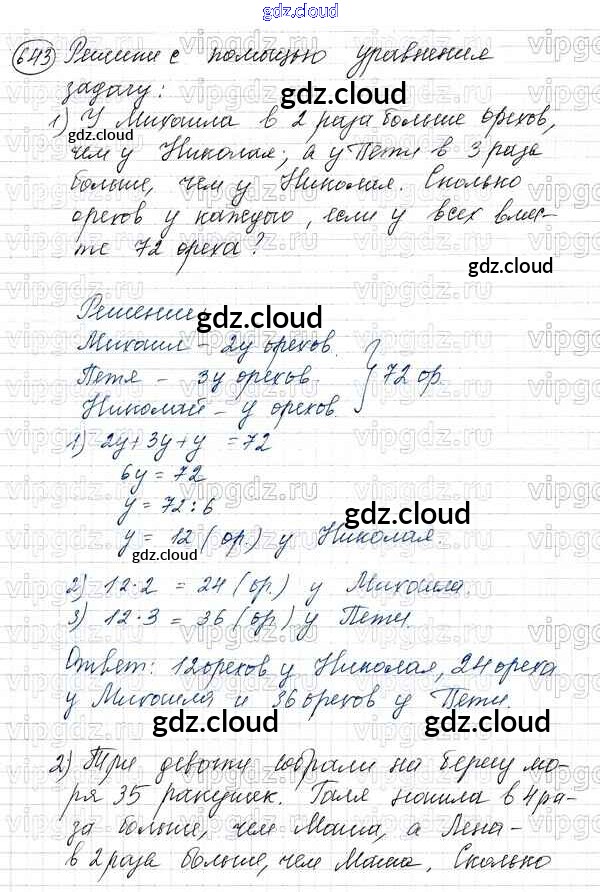 gdz.cloud
643 Решите с помощью уравнения
gdz.cloud
задачу:
gdz.cloud
1) У Михаила в 2 раза больше орехов,
чем у Николая, а у Пети в 3 раза
больше, чем у Николая. Сколько
орехов у каждого, если у всех вмес-
те 72 ореха?
gdz.cloud
Решение:
gdz.cloud
Михаил – 2у орехов.
Петя – 3у орехов. } 72 ор.
Николай – у орехов.
1) 2у+3у+у = 72
6у = 72
у = 72 : 6
gdz.cloud
у = 12 (ор.) у Николая.
gdz.cloud
2) 12·2 = 24 (ор.) у Михаила.
3) 12·3 = 36 (ор.) у Пети.
Ответ: 12 орехов у Николая, 24 ореха
у Михаиля и 36 орехов у Пети.
gdz.cloud gdz.cloud
2) Три девочки собрали на берегу мо-
ря 35 ракушек. Галя нашла в 4 ра-
за больше, чем Маша, а Лена –
в 2 раза больше, чем Маша. Сколько
gdz.cloud gdz.cloud